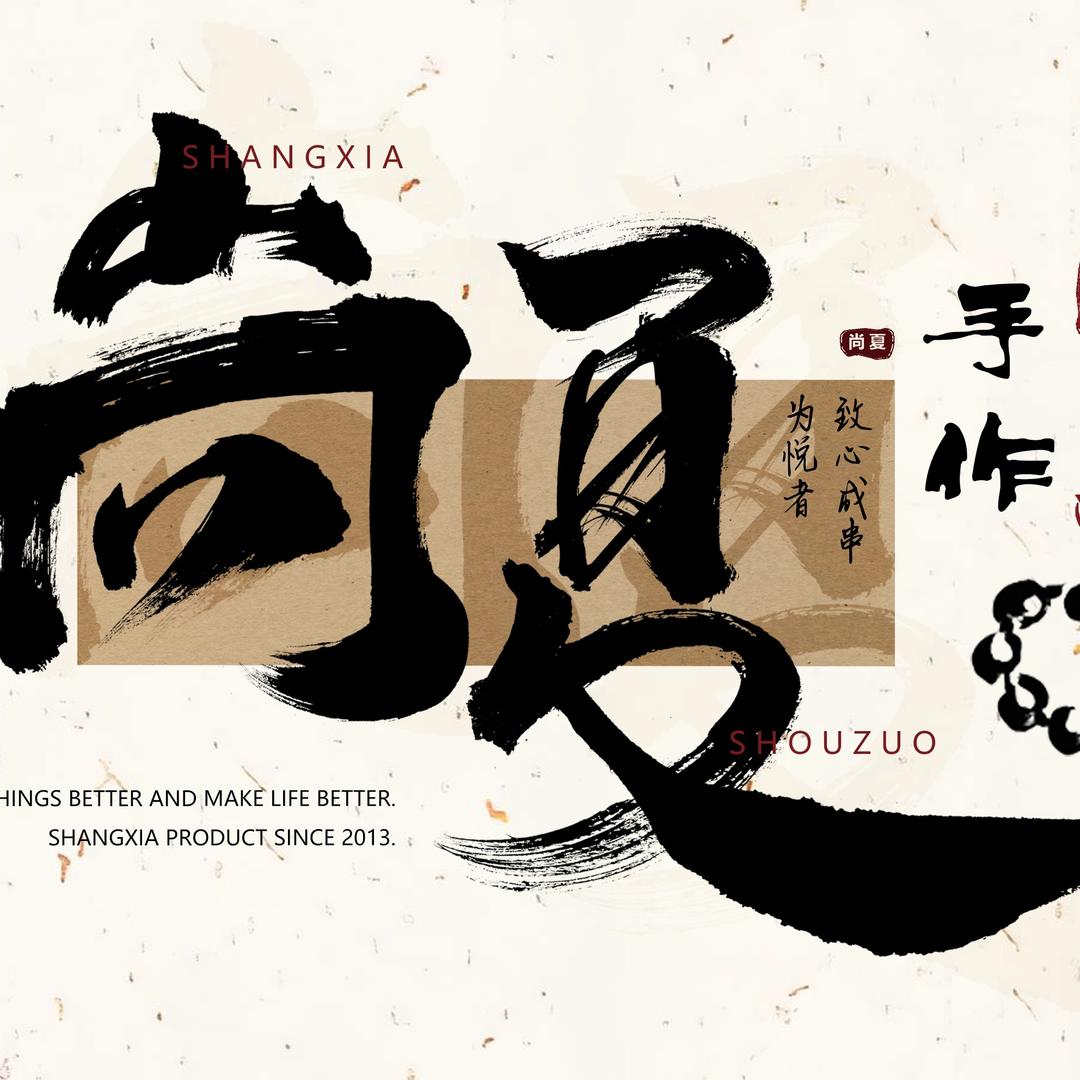 SHANGXIA
尚夏
尚夏
致心成串
为悦者
手作
SHOUZUO
HINGS BETTER AND MAKE LIFE BETTER.
SHANGXIA PRODUCT SINCE 2013.